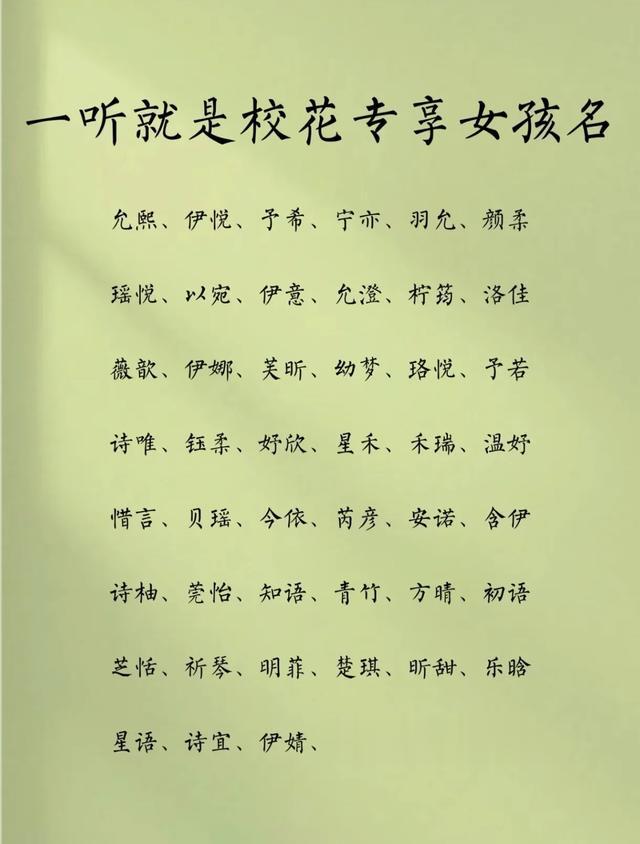 一听就是校花专享女孩名
允熙、伊悦、予希、宁亦、羽允、颜柔
瑶悦、以宛、伊意、允澄、柠筠、洛佳
薇歆、伊娜、芙昕、幼梦、珞悦、予若
诗唯、钰柔、妤欣、星禾、禾瑞、温妤
惜言、贝瑶、今依、芮彦、安诺、含伊
诗柚、莞怡、知语、青竹、方晴、初语
芝恬、祈琴、明菲、楚琪、昕甜、乐晗
星语、诗宜、伊婧、